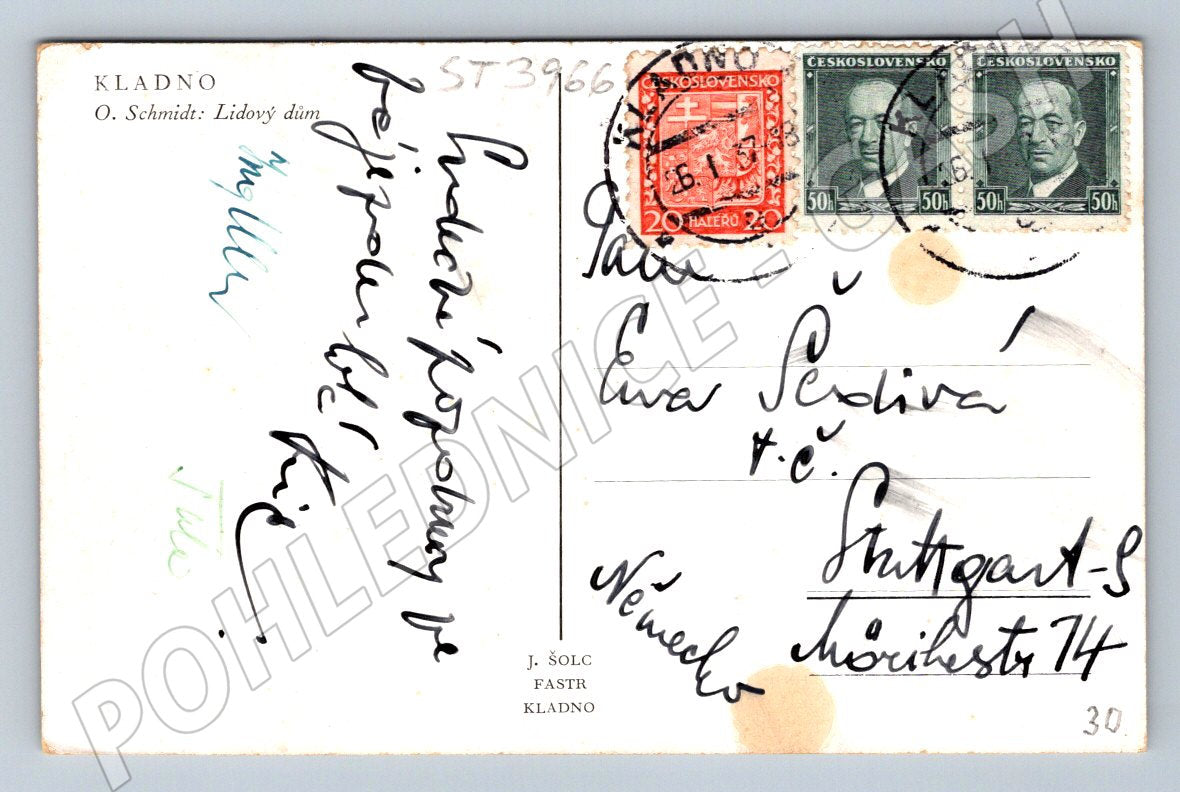 KLADNO
O. Schmidt: Lidový dům
ST3966
Srdečné pozdravy
J. ŠOLC
FASTR
KLADNO
ČESKOSLOVENSKO
20 HALÉŘŮ 20
ČESKOSLOVENSKO
50h 50h
ČESKOSLOVENSKO
50h 50h
KLADNO
26.I.37
KLADNO
26.I
Eva Šedivá
t.č.
Stuttgart-S
Mörikestr 74
Německo
30
POHLEDNICE - CPH